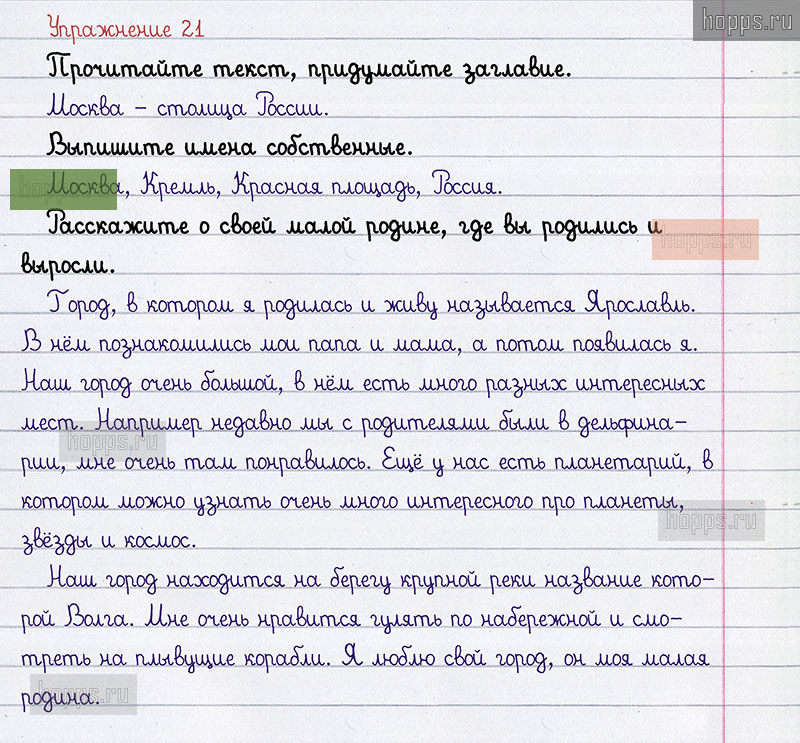 hopps.ru
Упражнение 21
Прочитайте текст, придумайте заглавие.
Москва – столица России.
Выпишите имена собственные.
Москва, Кремль, Красная площадь, Россия.
hopps.ru
Расскажите о своей малой родине, где вы родились и
hopps.ru
выросли.
Город, в котором я родилась и живу называется Ярославль.
В нём познакомились мои папа и мама, а потом появилась я.
Наш город очень большой, в нём есть много разных интересных
мест. Например недавно мы с родителями были в дельфина-
hopps.ru
рии, мне очень там понравилось. Ещё у нас есть планетарий, в
котором можно узнать очень много интересного про планеты,
hopps.ru
звёзды и космос.
Наш город находится на берегу крупной реки название кото-
рой Волга. Мне очень нравится гулять по набережной и смо-
треть на плывущие корабли. Я люблю свой город, он моя малая
родина.
hopps.ru